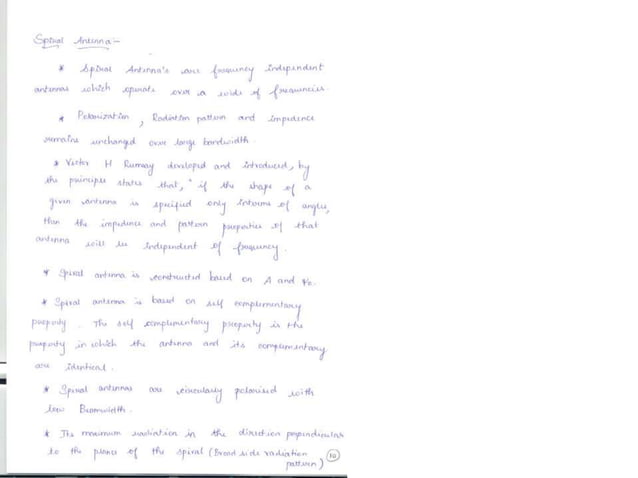 Spiral Antenna:-
* Spiral Antenna's are frequency independent
antennas which operate over a wide of frequencies.
* Polarization, Radiation pattern and impedence
remains unchanged over large bandwidth.
* Victor H Rumsay developed and introduced, by
the principle states that, "if the shape of a
given antenna is specified only interms of angles,
then the impedence and pattern properties of that
antenna will be independent of frequency.
* Spiral antenna is constructed based on A and
* Spiral antenna is based on self complementary
property. The self complimentary property is the
property in which the antenna and its complimentary
are identical.
* Spiral antennas are circularly polarised with
low Beamwidth.
* The maximum radiation in the direction perpendicular
to the planes of the spiral (Broad side radiation
pattern)